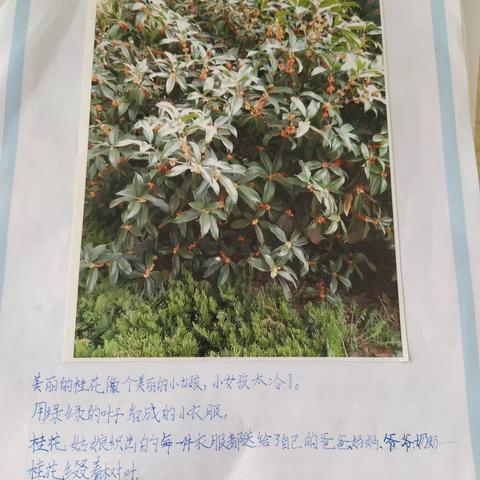 美丽的桂花像个美丽的小女孩，小女孩太冷了。
用绿绿的叶子织成的小衣服，
桂花姑娘织出的每一件衣服都送给了自己的爸爸、妈妈、爷爷、奶奶……
桂花缀着树叶